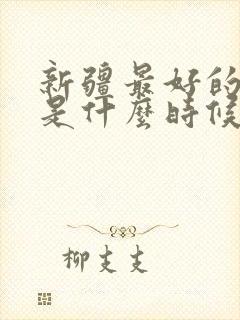 新疆最好的
是什麼時候
柳支支